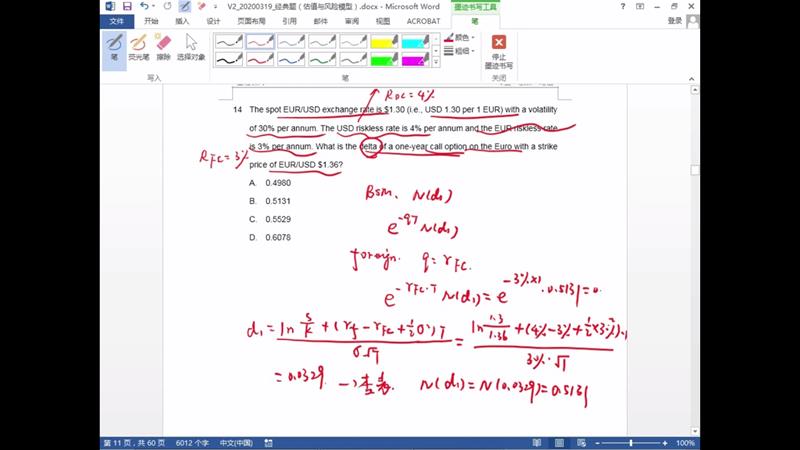 V2_20200319_经典题（估值与风险模型）.docx - Microsoft Word
墨迹书写工具
文件 开始 插入 设计 页面布局 引用 邮件 审阅 视图 ACROBAT 笔
登录
笔 荧光笔 擦除 选择对象
颜色
粗细
停止
墨迹书写
写入 笔 关闭
R_DC = 4%
14 The spot EUR/USD exchange rate is $1.30 (i.e., USD 1.30 per 1 EUR) with a volatility
of 30% per annum. The USD riskless rate is 4% per annum and the EUR riskless rate
is 3% per annum. What is the delta of a one-year call option on the Euro with a strike
R_FC = 3%
price of EUR/USD $1.36?
A. 0.4980
B. 0.5131
C. 0.5529
D. 0.6078
BSM. N(d₁)
e^-qT N(d₁)
foreign. q = r_FC.
e^-r_FC·T N(d₁) = e^-3%×1 · 0.5131 = 0.
d₁ = ln S/K + (r_f - r_FC + ½σ²)T / σ√T = ln 1.3/1.36 + (4% - 3% + ½×3%²)·1 / 30%·√1
= 0.0329 → 查表. N(d₁) = N(0.0329) = 0.5131
第 11 页，共 60 页 6012 个字 中文(中国) 100%